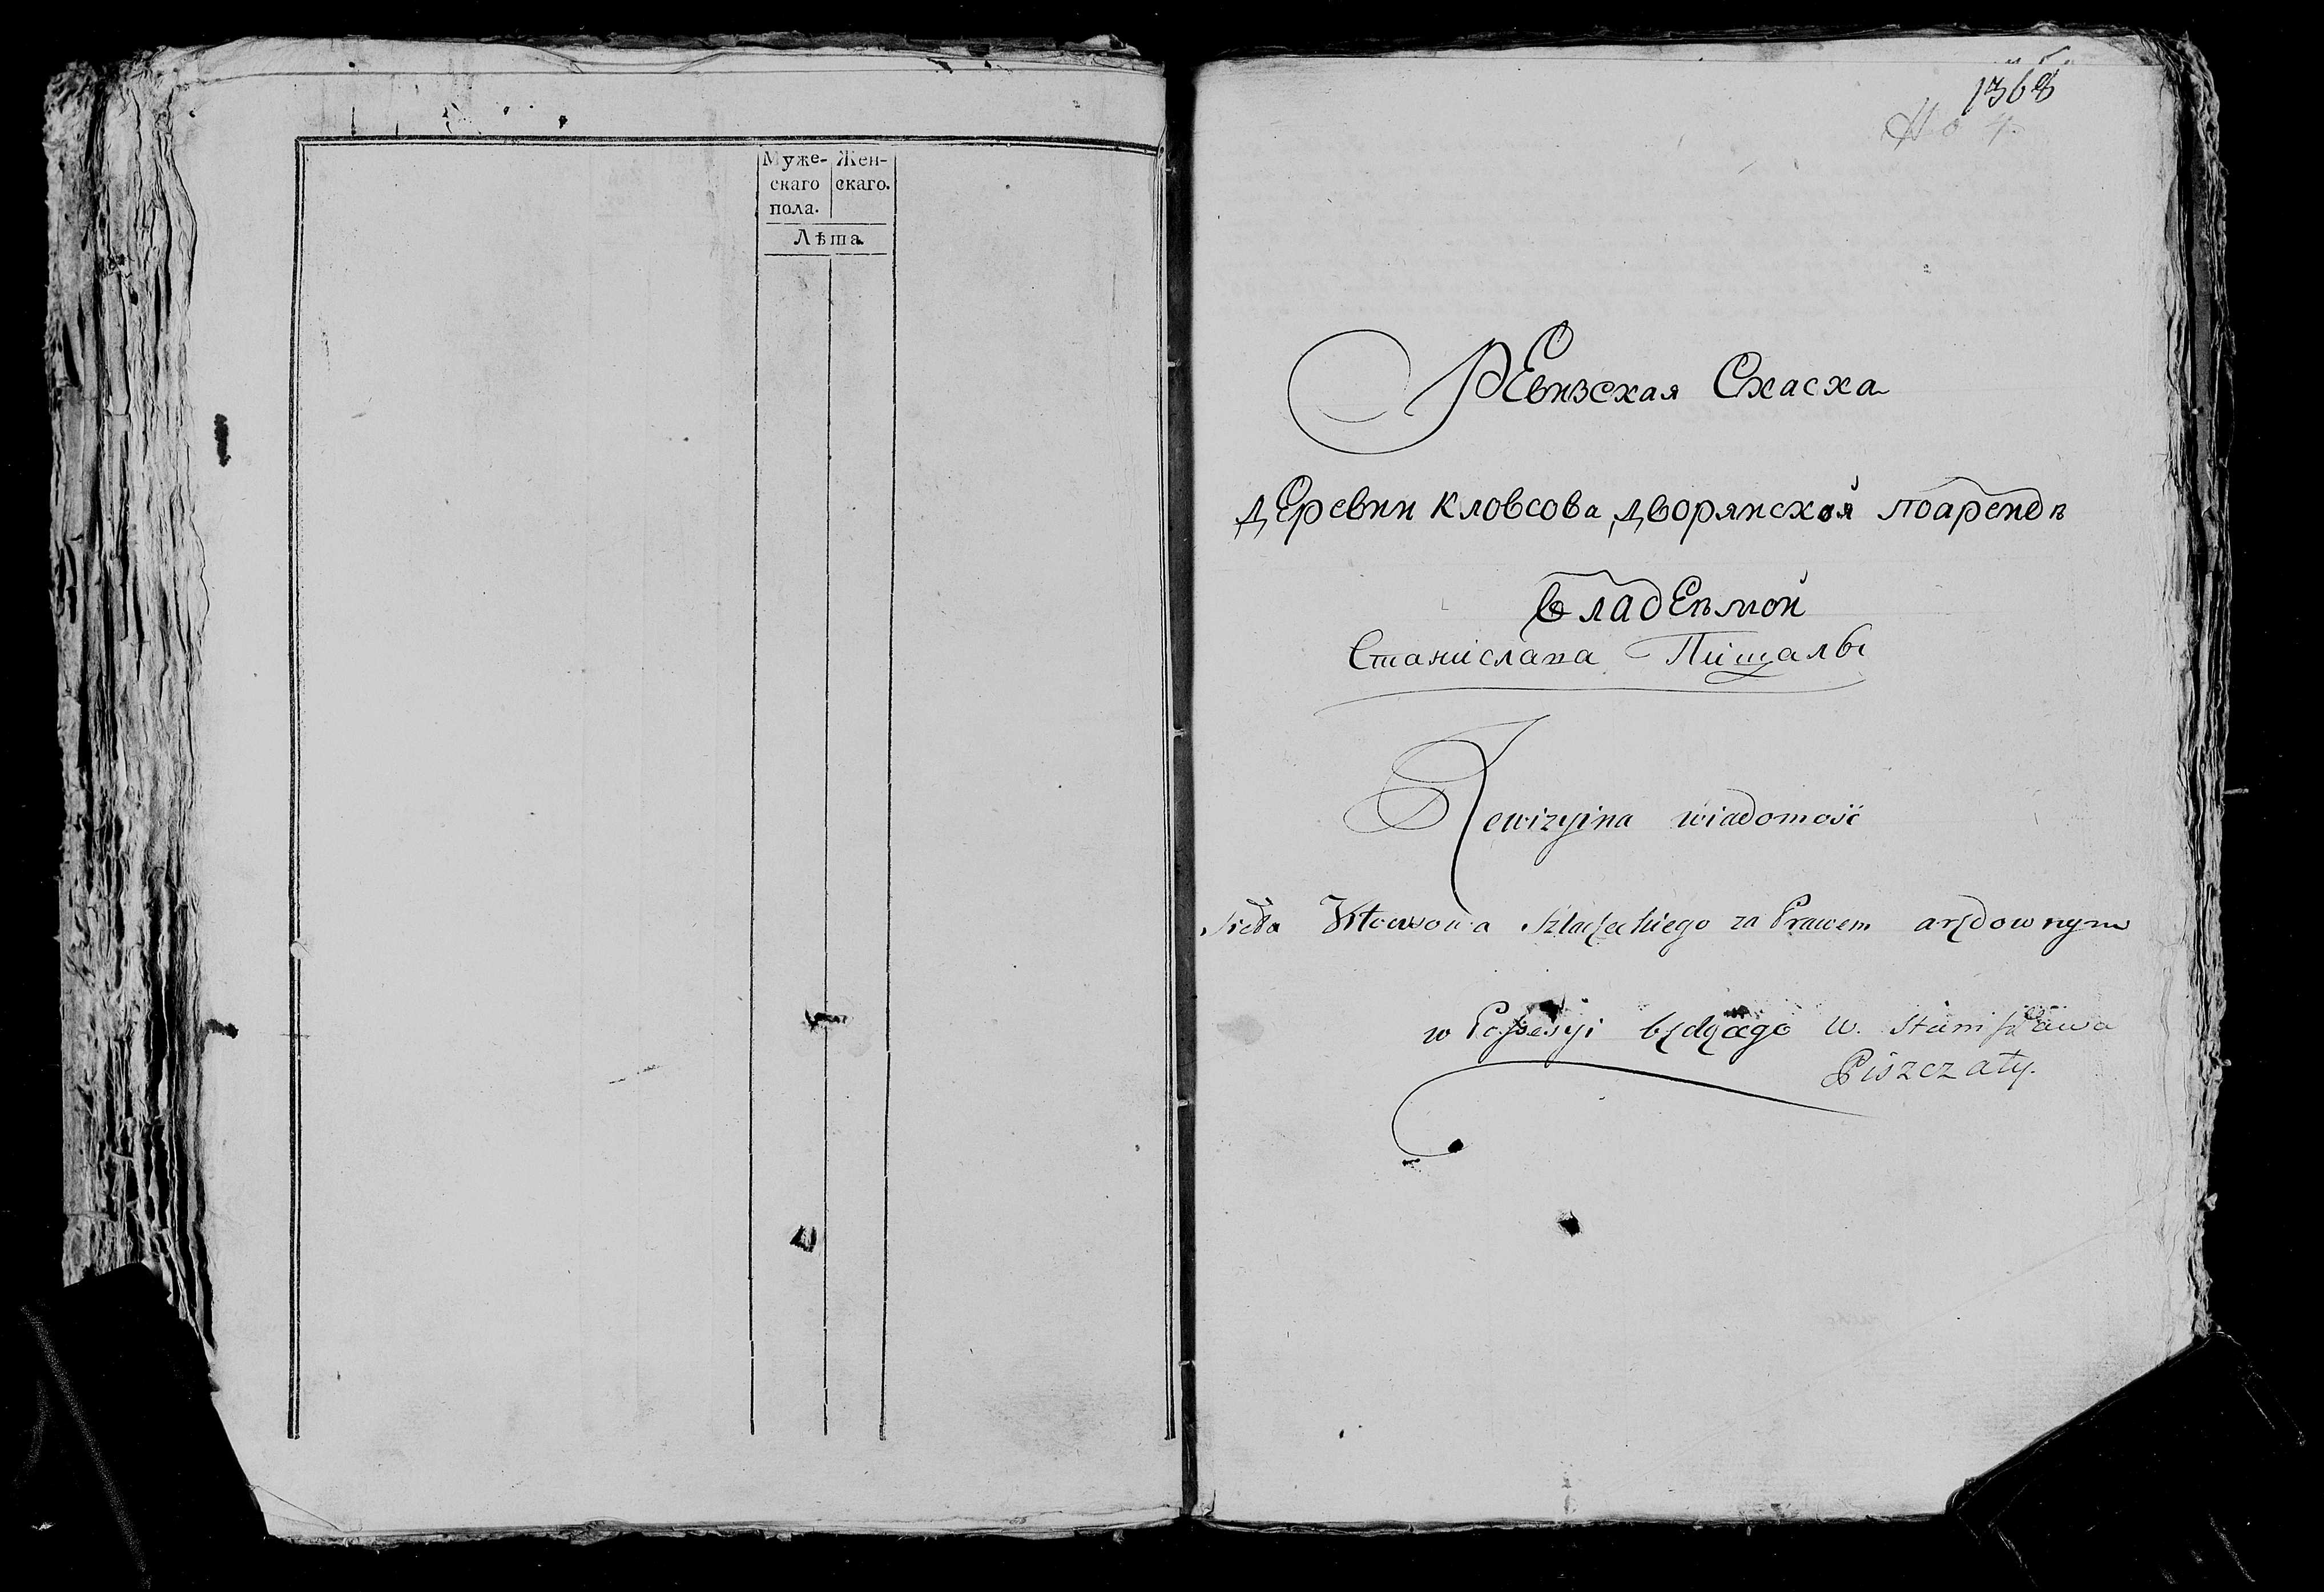 Муже- Жен-
скаго скаго.
пола.
Лѣта.
1368
No 4.
РЕвизская Скаска
дЕревни Кловсова дворянской поарендѣ
владЕемой
Станислава Пищалы
Rewizyina wiadomość
Sioła Kłowsowa Szlacheckiego za Prawem arędownym
w Possesyi będącego W. Stanisława
Piszczały.